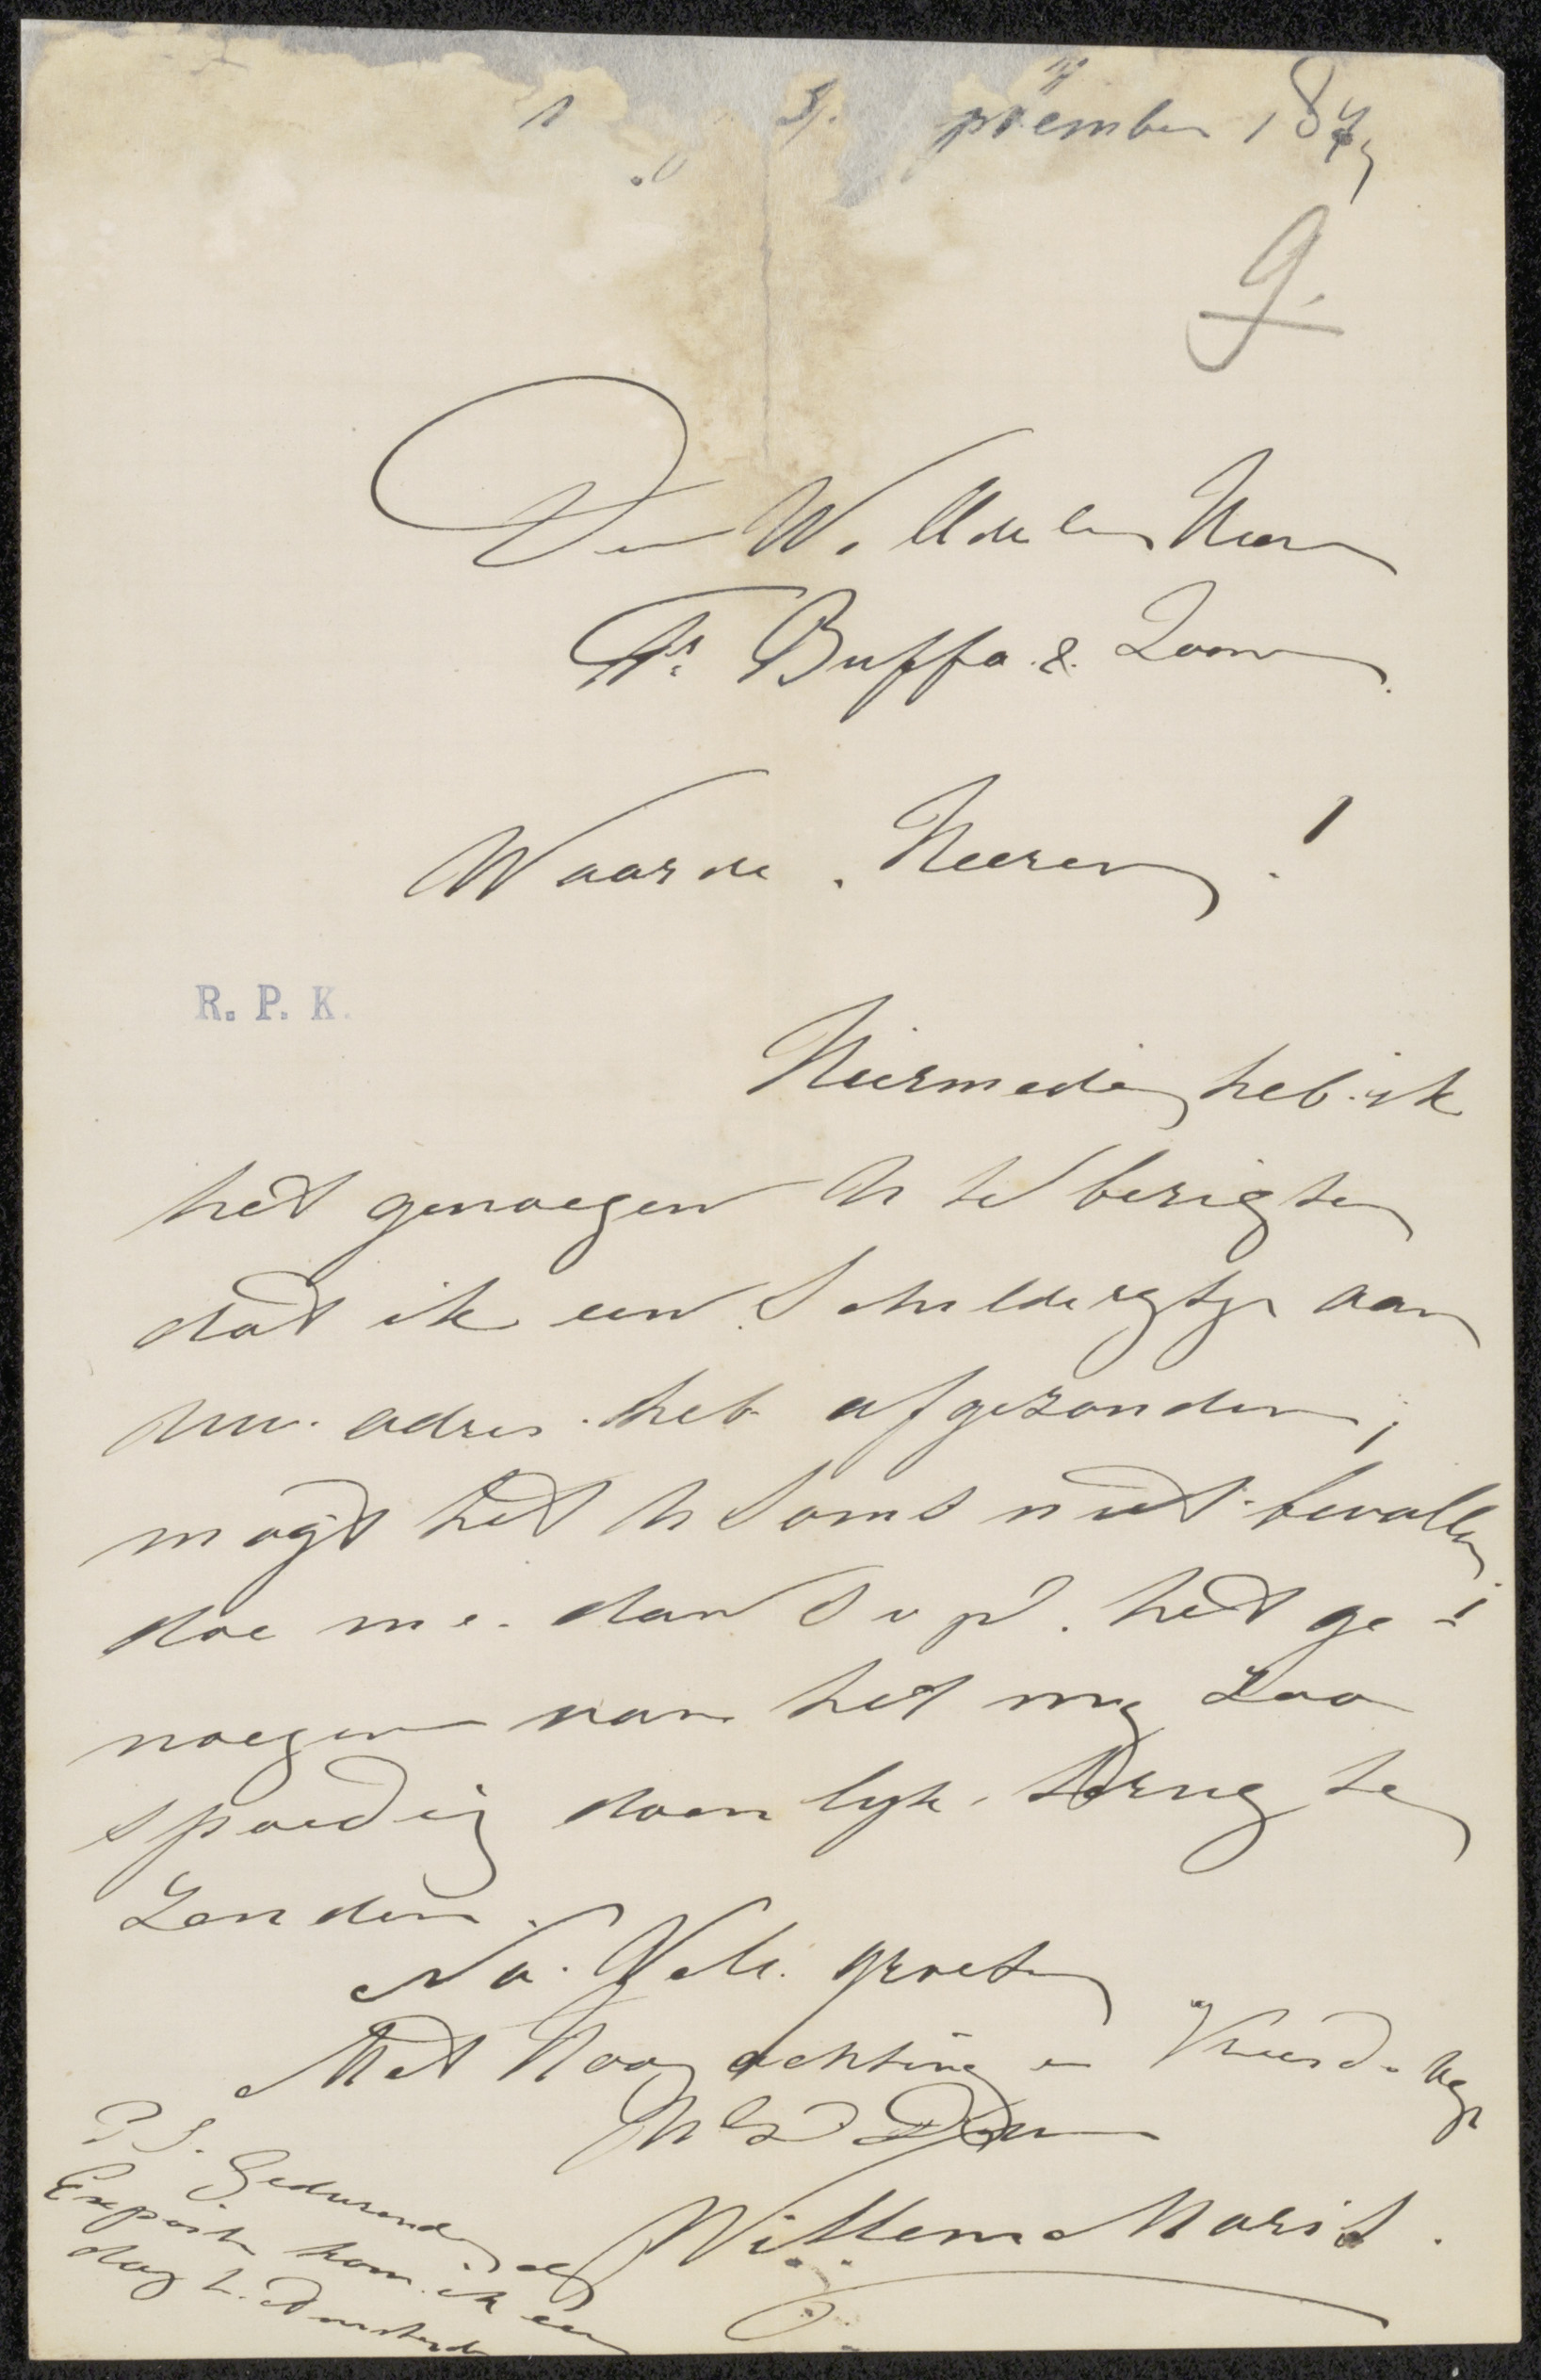 ptember 187
9.
Den W. Edelen Heeren
Fs. Buffa & Zoonen
Waarde Heeren!
R. P. K.
Hiermede heb ik
het genoegen U te berigten
dat ik een Schilderytje aan
uw adres heb afgezonden;
mogt het U Soms niet bevallen
doe me dan S v p. het ge-
noegen van het my zoo
spoedig doenlyk terug te
zenden.
Na. Vele groeten
Met Hoogachting en
UEd Dn
Willem Maris.
P S. Gedurende de
Expositie kom ik een
dag t. Amsterdam